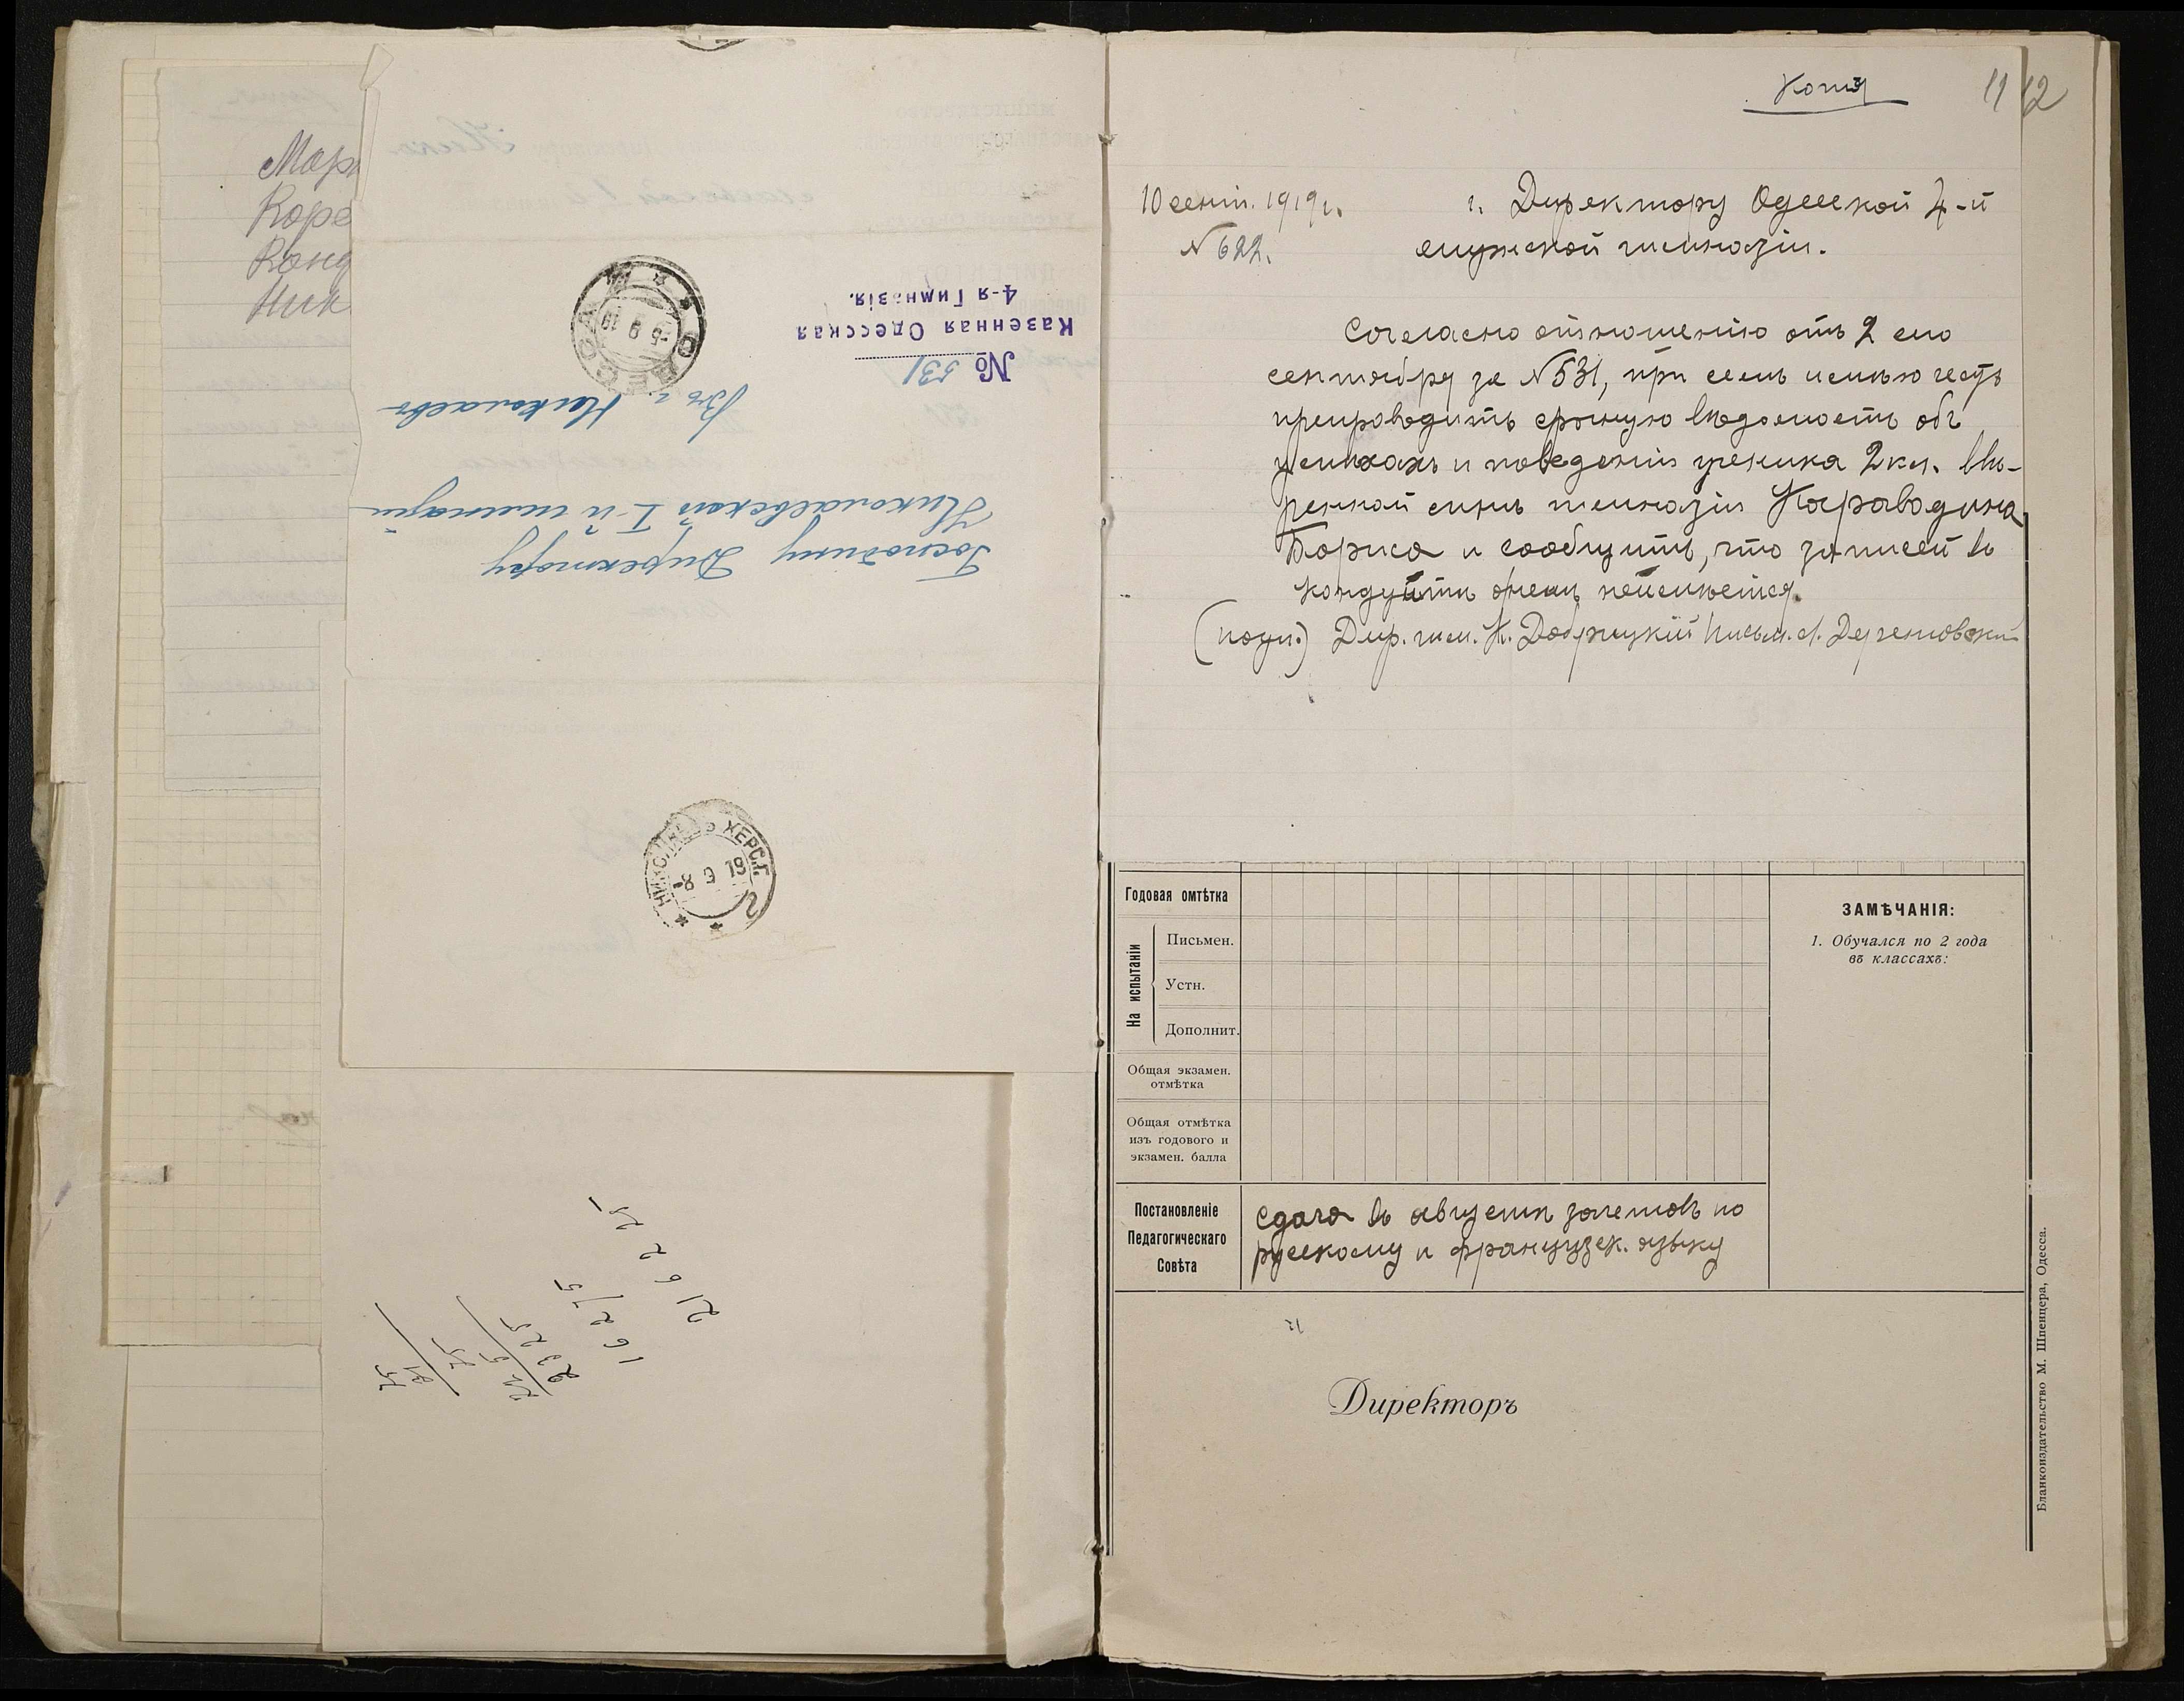 Мар
Коре
Конд
Ник
Казенная Одесская
4-я Гимназія.
№ 531
ОДЕССА
-5 9 19
Въ г. Николаевъ
Господину Директору
Николаевской I-й гимназіи
НИКОЛАЕВЪ ХЕРС.Г.
-8 9 19
Копія
11 12
10 сент. 1919 г.
№ 622.
г. Директору Одесской 4-й
мужской гимназіи.
Согласно отношенію отъ 2 сего
сентября за № 531, при семъ имѣю честь
препроводить срочную вѣдомость объ
успѣхахъ и поведеніи ученика 2 кл. ввѣ-
ренной мнѣ гимназіи Караводина
Бориса и сообщить, что записей въ
кондуитѣ о немъ не имѣется.
(подп.) Дир. гим. К. Добржицкій Письм.
Годовая омтѣтка
На испытаніи
Письмен.
Устн.
Дополнит.
Общая экзамен.
отмѣтка
Общая отмѣтка
изъ годового и
экзамен. балла
ЗАМѢЧАНІЯ:
1. Обучался по 2 года
въ классахъ:
Постановленіе
Педагогическаго
Совѣта
Сдача въ августѣ зачетовъ по
русскому и французск. языку
Директоръ
Бланкоиздательство М. Шпенцера, Одесса.